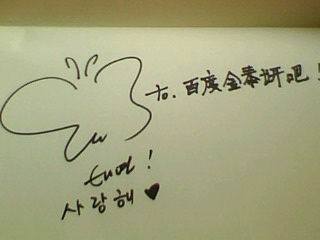 to. 百度金泰妍吧!
태연!
사랑해 ♥